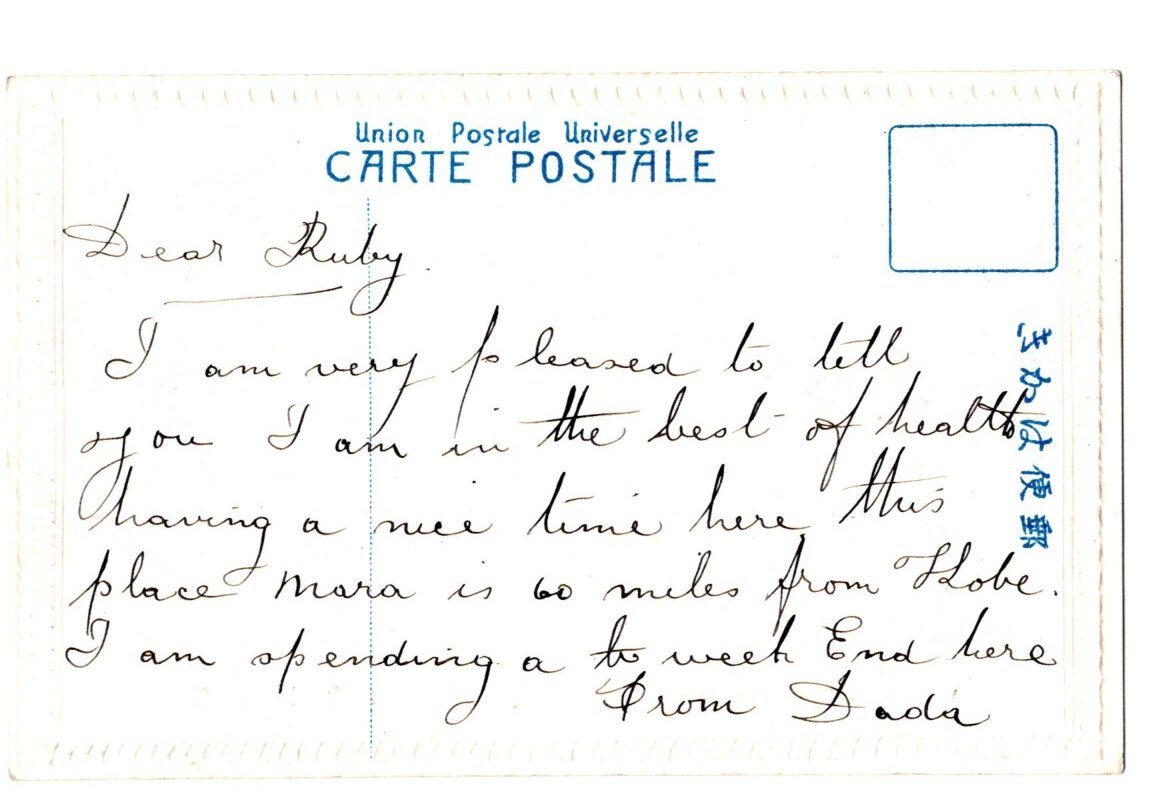 Union Postale Universelle
CARTE POSTALE
Dear Ruby.
I am very pleased to tell
you I am in the best of health
having a nice time here this
place Mara is 60 miles from Kobe.
I am spending a to week End here
From Dada
きかは便郵